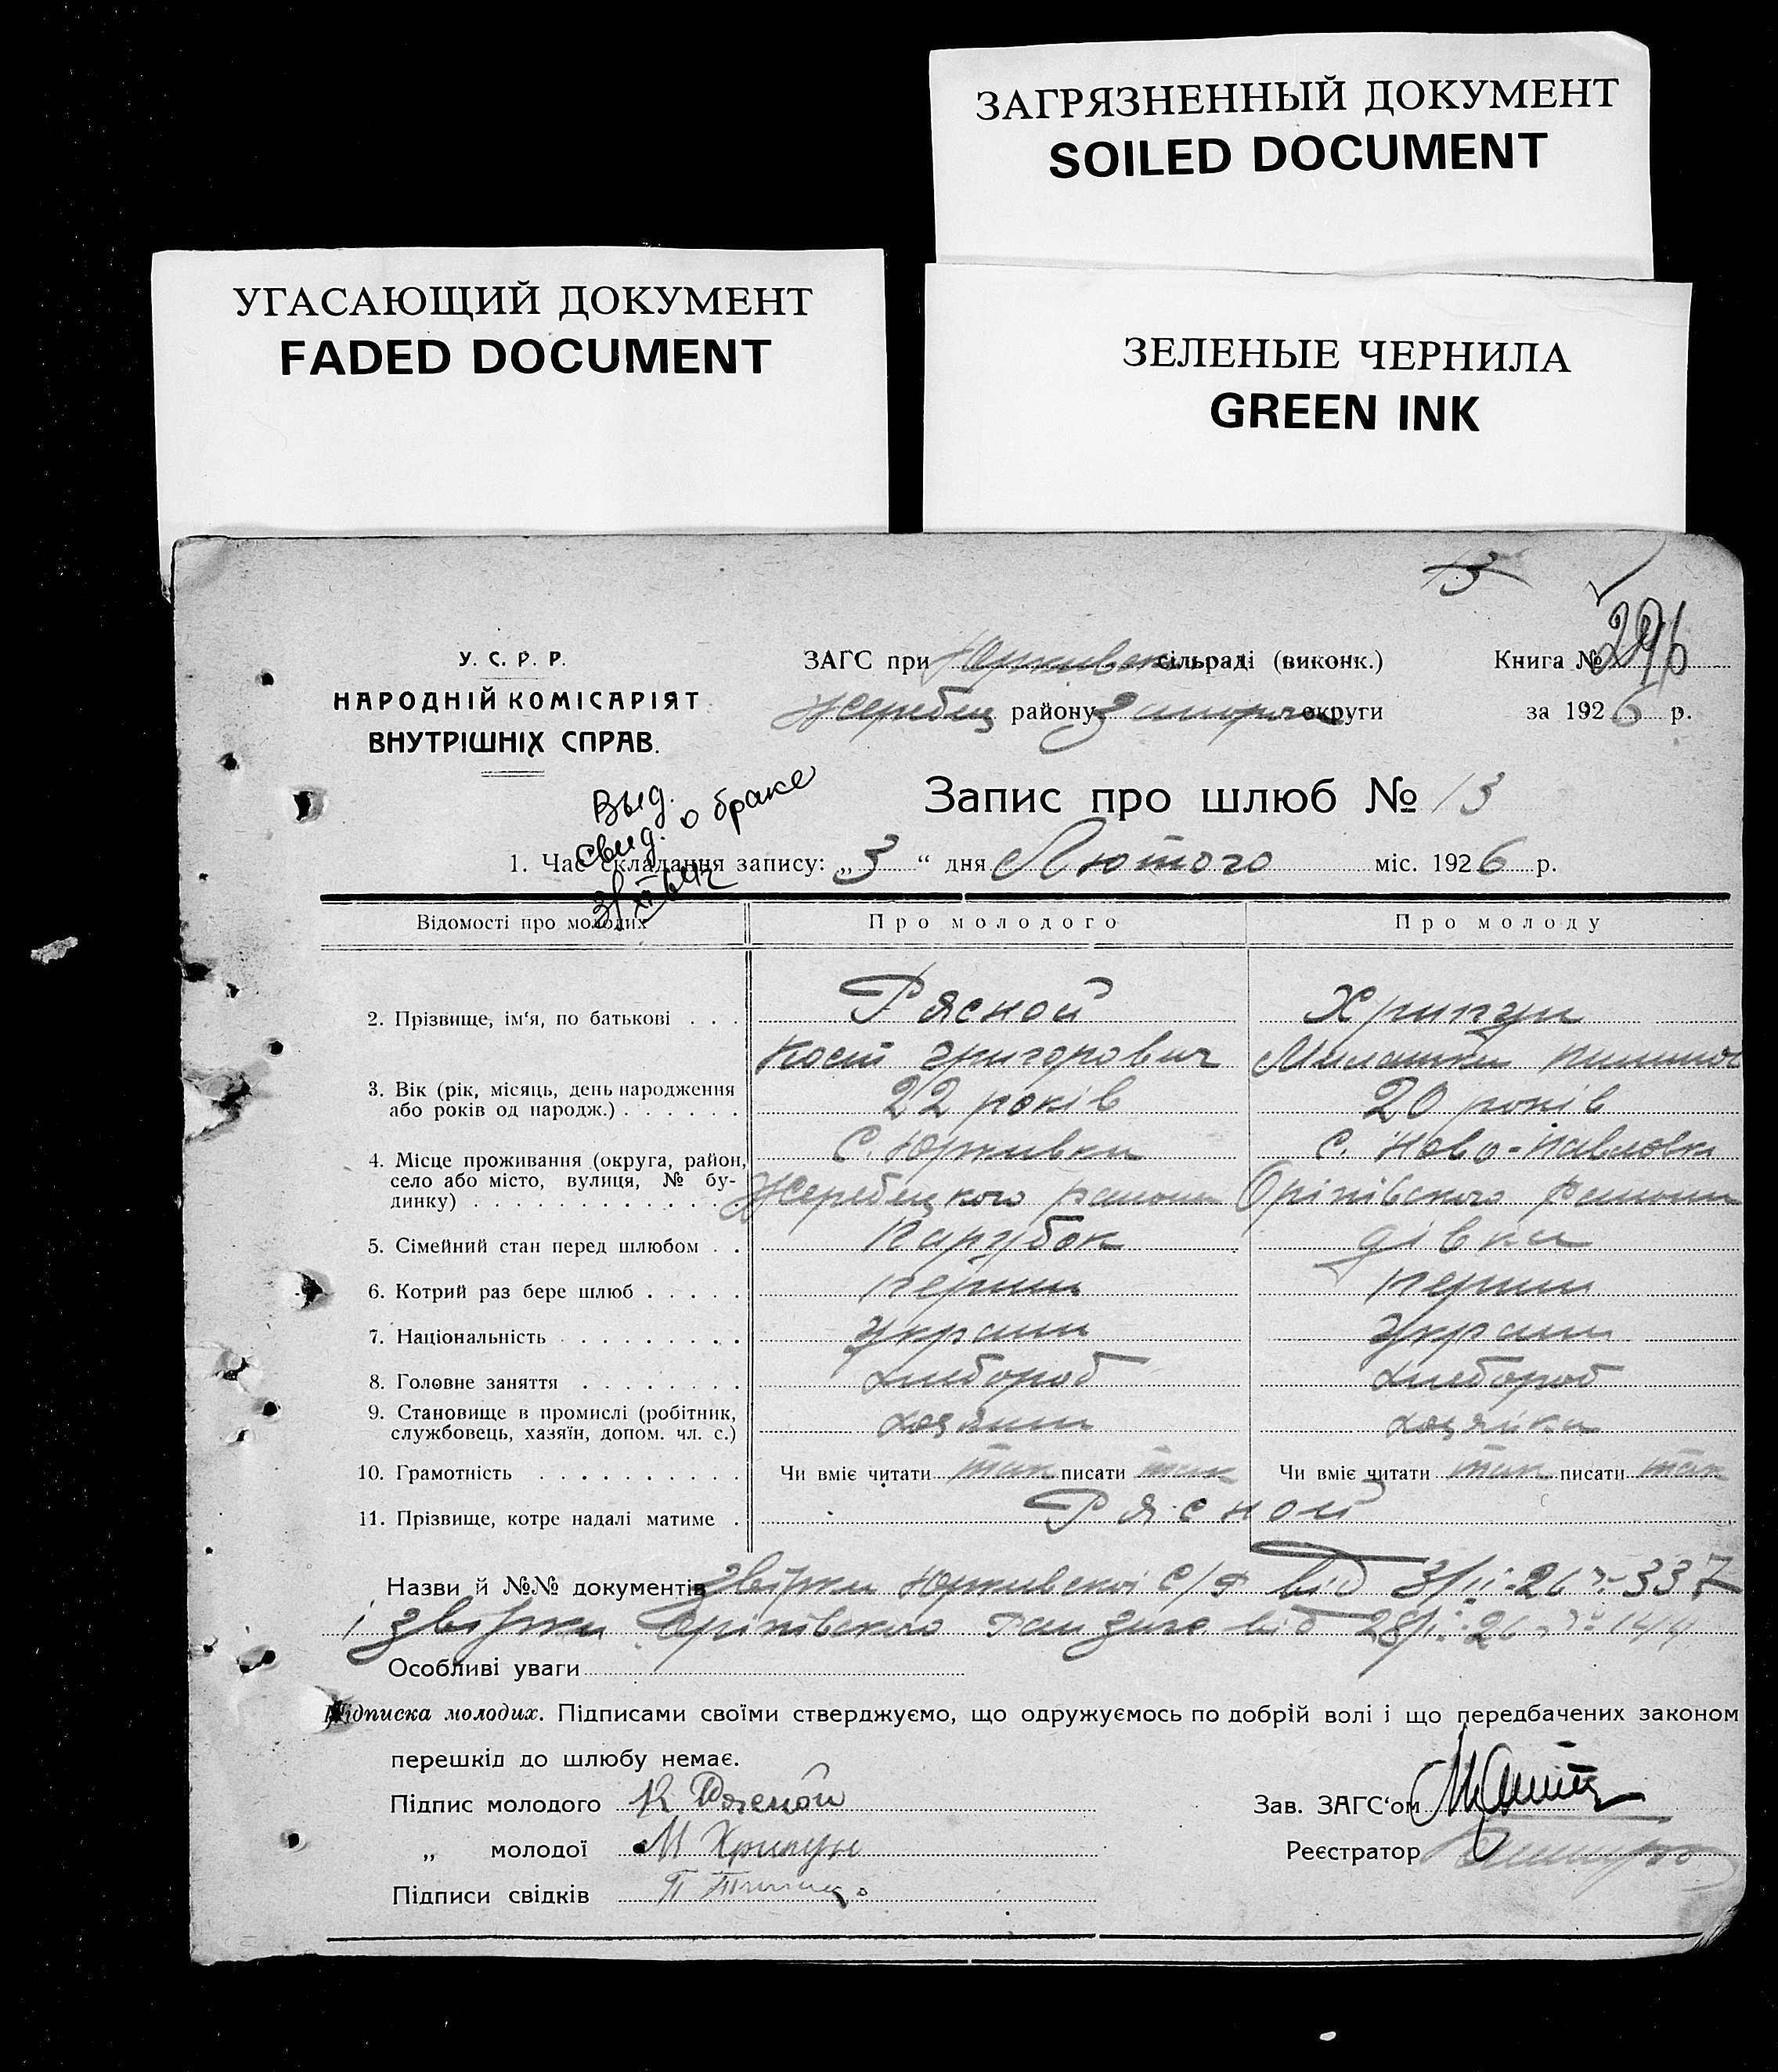 ЗАГРЯЗНЕННЫЙ ДОКУМЕНТ
SOILED DOCUMENT
УГАСАЮЩИЙ ДОКУМЕНТ
FADED DOCUMENT
ЗЕЛЕНЫЕ ЧЕРНИЛА
GREEN INK
13
У. С. Р. Р.
НАРОДНІЙ КОМІСАРІЯТ
ВНУТРІШНІХ СПРАВ.
ЗАГС при Юрківській сільраді (виконк.)
Книга №
Жеребец району Запоріж округи
за 1926 р.
Выд.
свид. о браке
Запис про шлюб № 13
1. Час складання запису: „3“ дня Лютого міс. 1926 р.
Відомості про молодих
Про молодого
Про молоду
2. Прізвище, ім'я, по батькові
Рясной
Хрипун
Кость Григорович
3. Вік (рік, місяць, день народження
або років од народж.)
22 років
20 років
4. Місце проживання (округа, район,
село або місто, вулиця, № бу-
динку)
с. Юрківка
с. Ново-Павловка
Жеребецкого району
Оріхівского району
5. Сімейний стан перед шлюбом
Парубок
дівка
6. Котрий раз бере шлюб
перший
перший
7. Національність
україн
україн
8. Головне заняття
хлібороб
хлібороб
9. Становище в промислі (робітник,
службовець, хазяїн, допом. чл. с.)
хозяїн
хозяйка
10. Грамотність
Чи вміє читати так писати так
Чи вміє читати так писати так
11. Прізвище, котре надалі матиме
Рясной
Назви й №№ документів звірки Юрківскої с/р від 3/ІІ-26 г. 337
і звірки Оріхівского від 28/І-26
Особливі уваги
Підписка молодих. Підписами своїми стверджуємо, що одружуємось по добрій волі і що передбачених законом
перешкід до шлюбу немає.
Підпис молодого К Рясной
Зав. ЗАГС'ом
„ молодої М Хрипун
Реєстратор
Підписи свідків